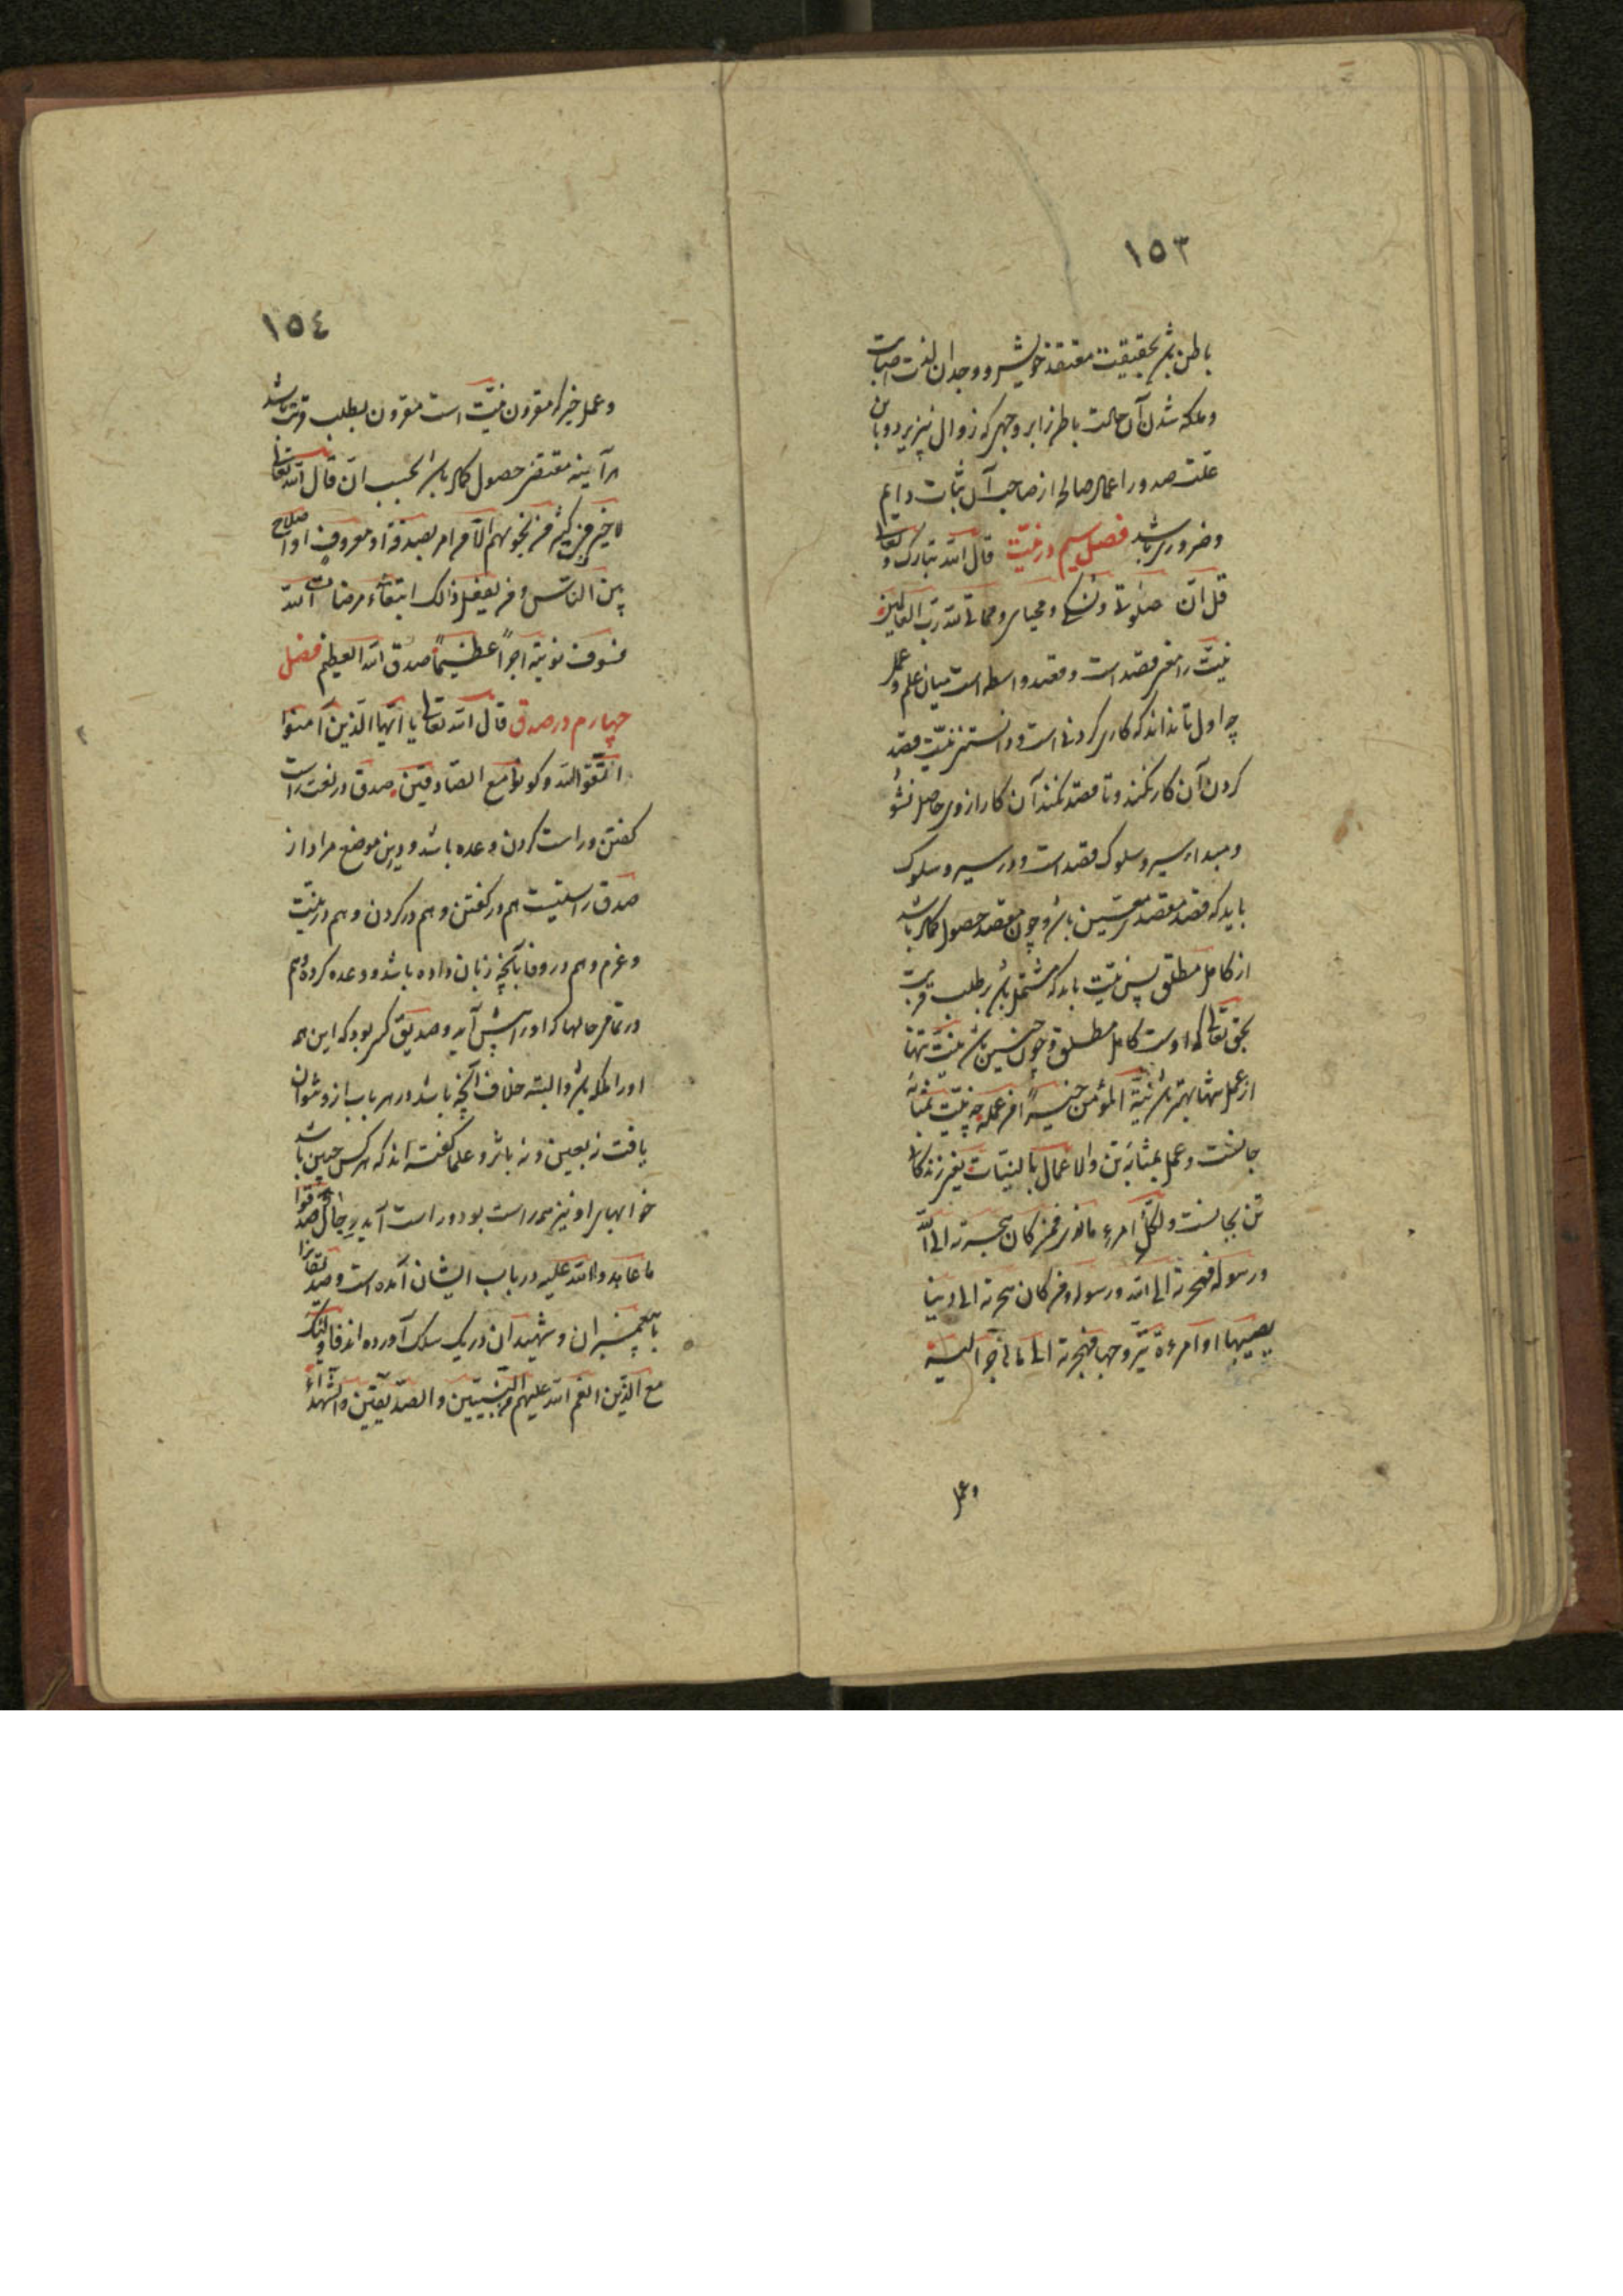 ١٥٣
باطن باشد بحقیقت معتقد خویش و وجدان لذت اصابت
و ملکه شدن آن حالت باطن را بر وجهی که زوال نپذیرد و باین
علت صدور اعمال صالح از صاحب آن ثبات دایم
و ضروری باشد فصل سیم در نیت قال الله تبارک و تعالی
قل ان صلوتی و نسکی و محیای و مماتی لله رب العالمین
نیت را معنی قصد است و قصد واسطه است میان علم و عمل
چه اول تا نداند که کاری کردنی است و دانستن نیت قصد
کردن آن کار نکند و تا قصد نکند آن کار از وی حاصل نشود
و مبدا سیر و سلوک قصد است و در سیر و سلوک
باید که قصد مقصد معین باشد و چون مقصد حصول کمال باشد
از کامل مطلق پس نیت باید که مشتمل باشد بر طلب قربت
بحق تعالی که اوست کامل مطلق و چون چنین باشد نیت تنها
از عمل تنها بهتر باشد نیة المؤمن خیر من عمله چه نیت بمثابه
جانست و عمل بمثابه تن و الاعمال بالنیات یعنی زندگانی
تن بجانست و لکل امرء ما نوی فمن کان هجرته الی الله
و رسوله فهجرته الی الله و رسوله و من کان هجرته الی دنیا
یصیبها او امرءة یتزوجها فهجرته الی ما هاجر الیه
و عمل
١٥٤
و عمل خیر که مقرون بنیت است مقرون بطلب قربت باشد
هر آینه مقتضی حصول کمال باشد بحسب آن قال الله تعالی
لا خیر فی کثیر من نجویهم الا من امر بصدقة او معروف او اصلاح
بین الناس و من یفعل ذالک ابتغاء مرضات الله
فسوف نؤتیه اجرا عظیما صدق الله العظیم فصل
چهارم در صدق قال الله تعالی یا ایها الذین آمنوا
اتقوا الله و کونوا مع الصادقین صدق در لغت راست
گفتن و راست کردن وعده باشد و درین موضع مراد از
صدق راستیست هم در گفتن و هم در کردن و هم در نیت
و عزم و هم در وفا بآنچه زبان داده باشد و وعده کرده و هم
در تمامی حالها که او را پیش آید و صدیق کسی بود که این همه
او را ملکه باشد و البته خلاف آنچه باشد در هر باب از و نتوان
یافت نه بعین و نه باثر و علما گفته اند که هر کس چنین باشد
خوابهای او نیز همه راست بود و راست آید رجال صدقوا
ما عاهدوا الله علیه در باب ایشان آمده است و صدیقانرا
با پیغمبران و شهیدان در یک سلک آورده اند فاولئک
مع الذین انعم الله علیهم من النبیین و الصدیقین و الشهداء